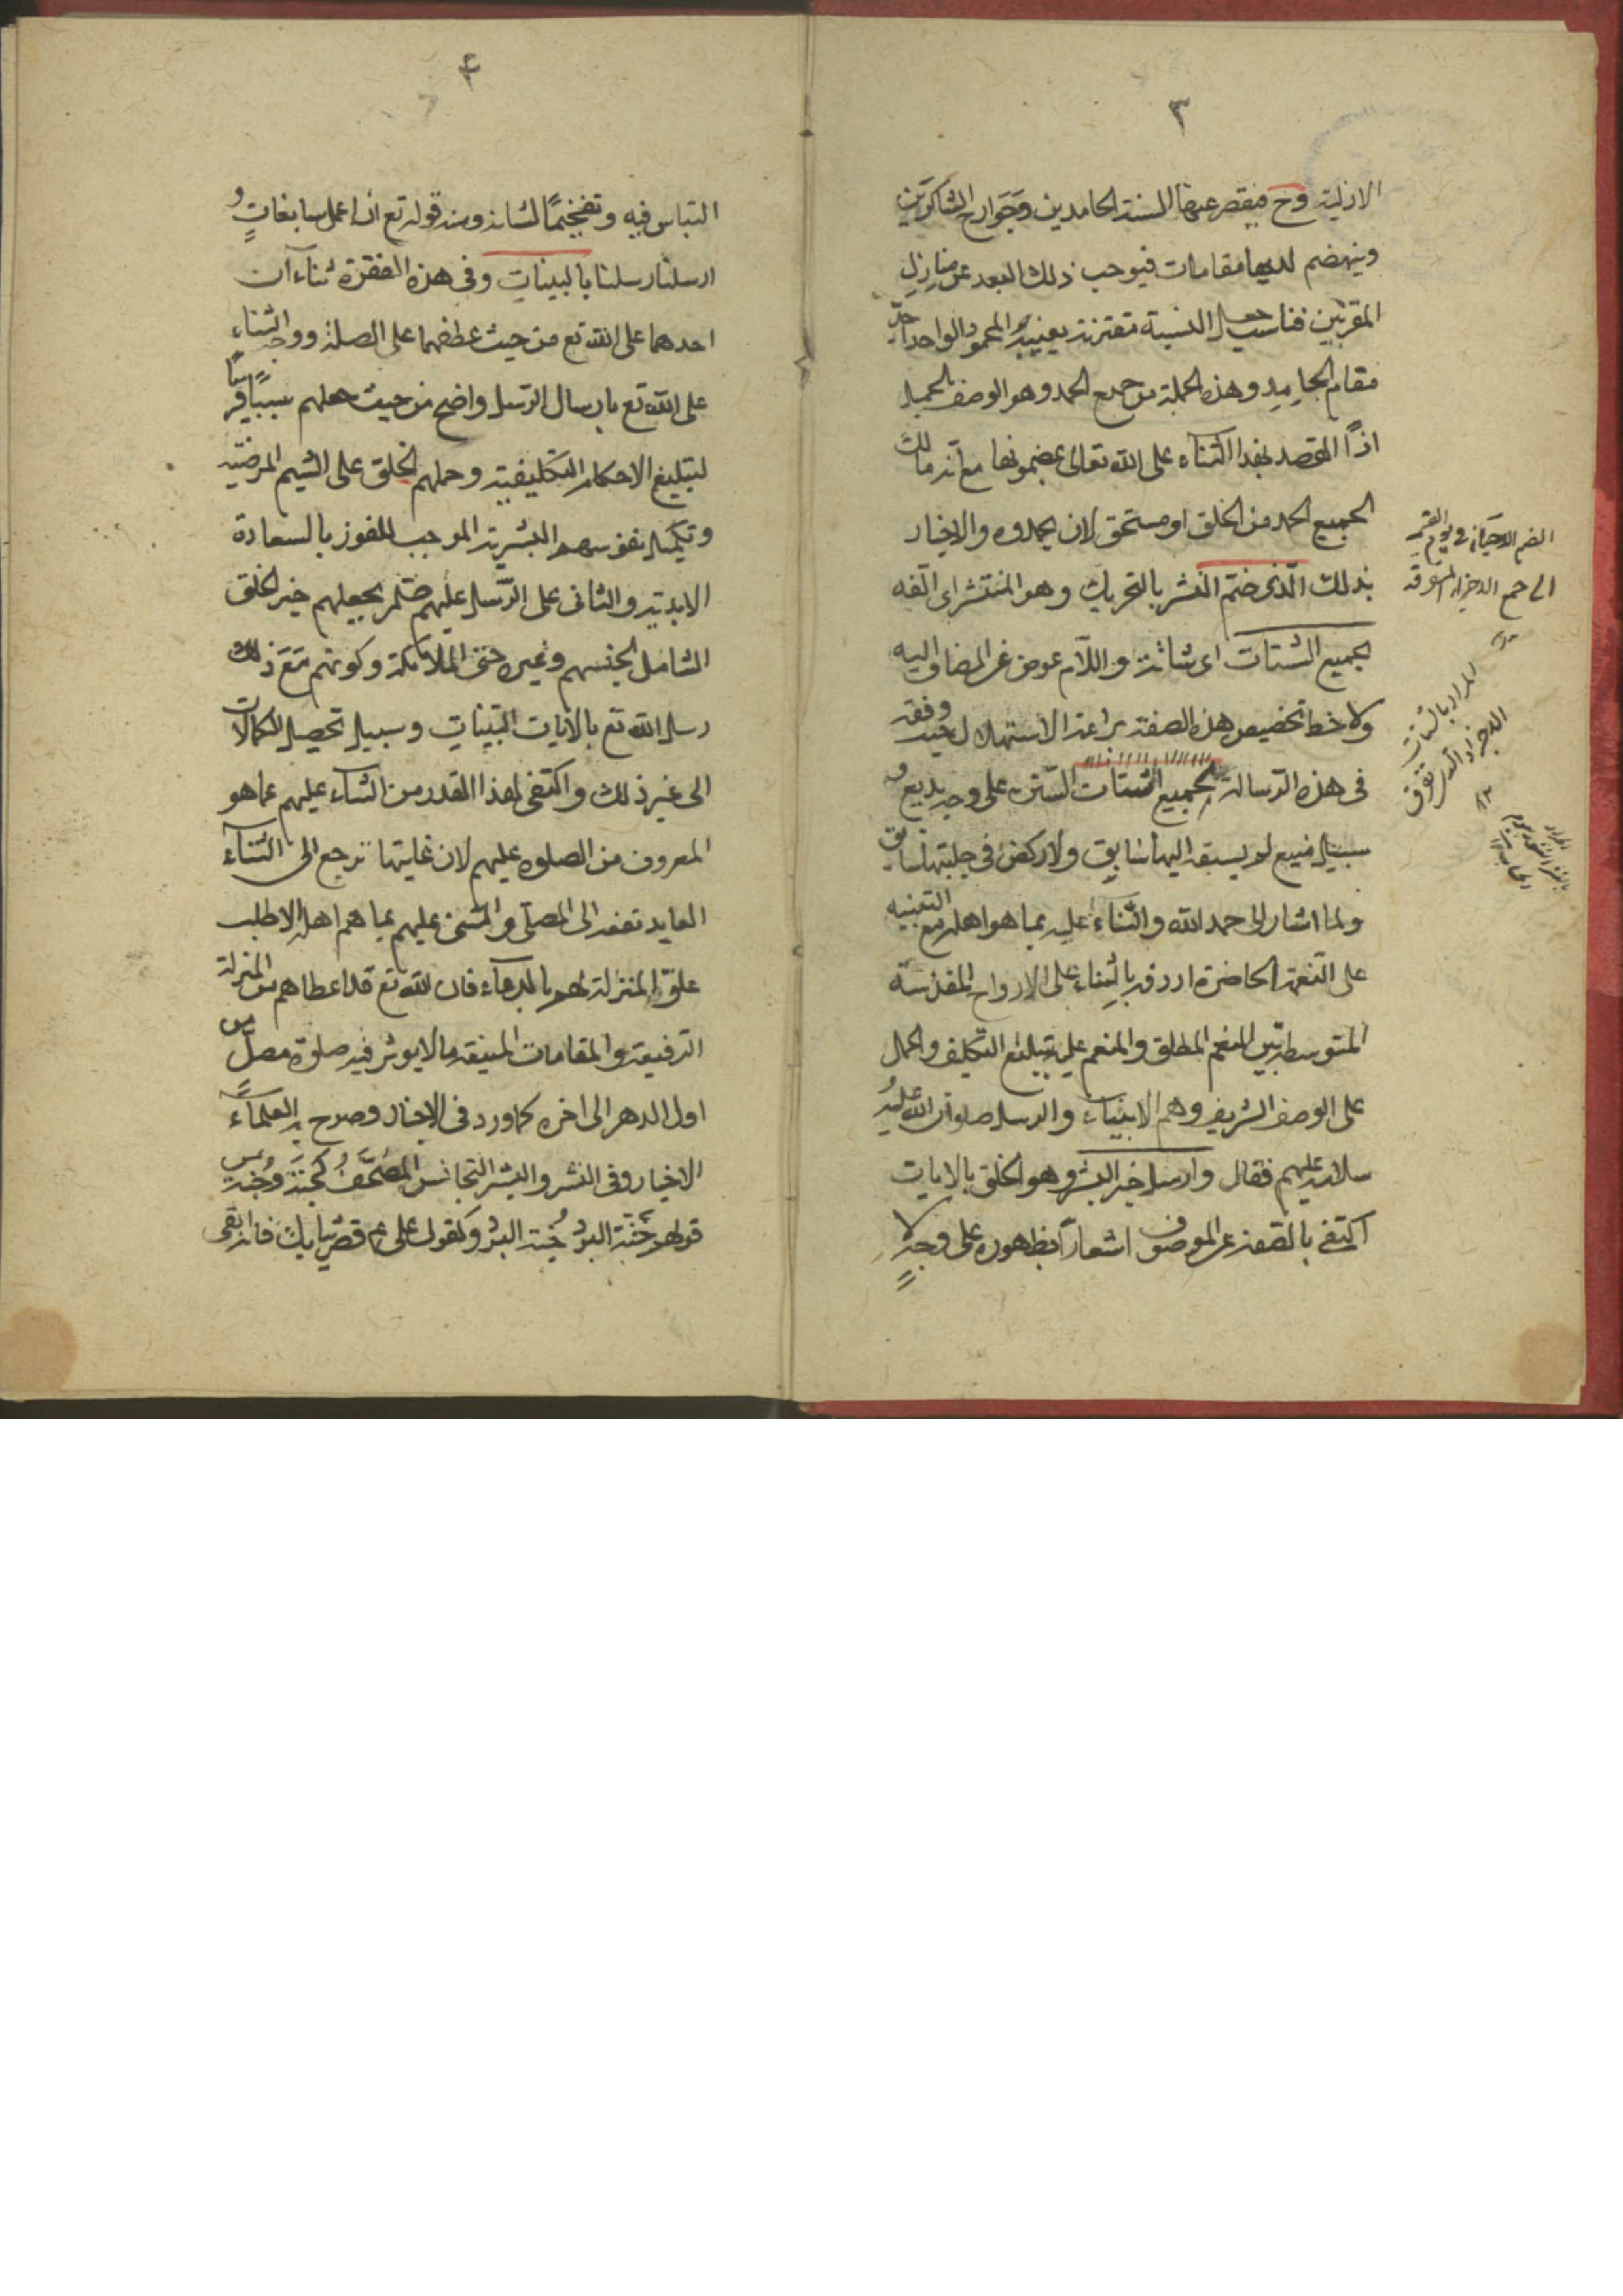 ٣
الازلية وح فيقصر عنها السنة الحامدين وجوارح الشاكرين
وينهضم لديها مقامات فيوجب ذلك البعد عن منازل
المقربين فناسب جعل النسبة مقترنة بغيبة المحمود الواحد
مقام الحامد وهذه الجملة من صيغ الحمد وهو الوصف بالجميل
اذ القصد بهذا الثناء على الله تعالى بمضمونها مع انه مالك
الجميع الحمد من الخلق او مستحق لان يحمدوه والاخبار
بذلك الّذى ضمّ النشر بالتحريك وهو المنتشر اى الّفه
لجميع الشتات اى شتاته واللام عوض عن المضاف اليه
ولاحظ تخصيص هذه الصفة براعة الاستهلال حيث وفقه
فى هذه الرسالة لجميع الشتات السنن على وجه بديع و
سبيل منيع لم يسبقه اليها سابق ولا ركض فى حلبتها سابق
ولما اشار الى حمد الله والثناء عليه بما هو اهله مع التنبيه
على النعمة الحاضرة اردفه بالثناء على الارواح المقدسة
المتوسط بين المنعم المطلق والمنعم عليه بتبليغ التكليف والحمل
على الوصف الشريف وهم الانبياء والرسل صلوات الله عليه
سلامه عليهم فقال وارسل خير البشر وهو الخلق بالايات
اكتفى بالصفة عن الموصوف اشعارًا بظهوره على وجه لا
الضم الاحيائى فى يوم القيمة
الى جمع الاجزاء المتفرقة
المراد بالشتات
الاجزاء التى تفرق
٤
التباس فيه وتفخيمًا لشانه ومنه قوله تع ان اعمل سابغات و
ارسلنا رسلنا بالبينات وفى هذه الفقرة ثناءآن
احدهما على الله تع من حيث عطفهما على الصلة ووجه الثناء
على الله تع بارسال الرسل واضح من حيث جعلهم سببًا قريبًا
لتبليغ الاحكام التكليفية وحملهم الخلق على الشيم المرضية
وتكميل نفوسهم البشرية الموجب للفوز بالسعادة
الابدية والثانى على الرسل عليهم السلم بجعلهم خير الخلق
الشامل لجنسهم وغيره حتى الملائكة وكونهم مع ذلك
رسل الله تع بالايات البينات وسبيل تحصيل الكمالات
الى غير ذلك واكتفى بهذا القدر من الثناء عليهم عما هو
المعروف من الصلوه عليهم لان غايتها ترجع الى الثناء
العايد نفعه الى المصلّى والمثنى عليهم بما هم اهله لا طلب
علوّ المنزلة لهم بالدعاء فان الله تع قد اعطاهم من المنزلة
الرفيعة والمقامات المنيفة ما لا يوثر فيه صلوة مصلّ من
اول الدهر الى اخره كما ورد فى الاخبار وصرح به العلماء
الاخيار وفى النشر والبشر التجانس المصحّف كجَنّة وجُنّة ومن
قولهم جُبّة البُرد جُنّة البَرد وكقول على ع قصّر ثيابك فانه ابقى